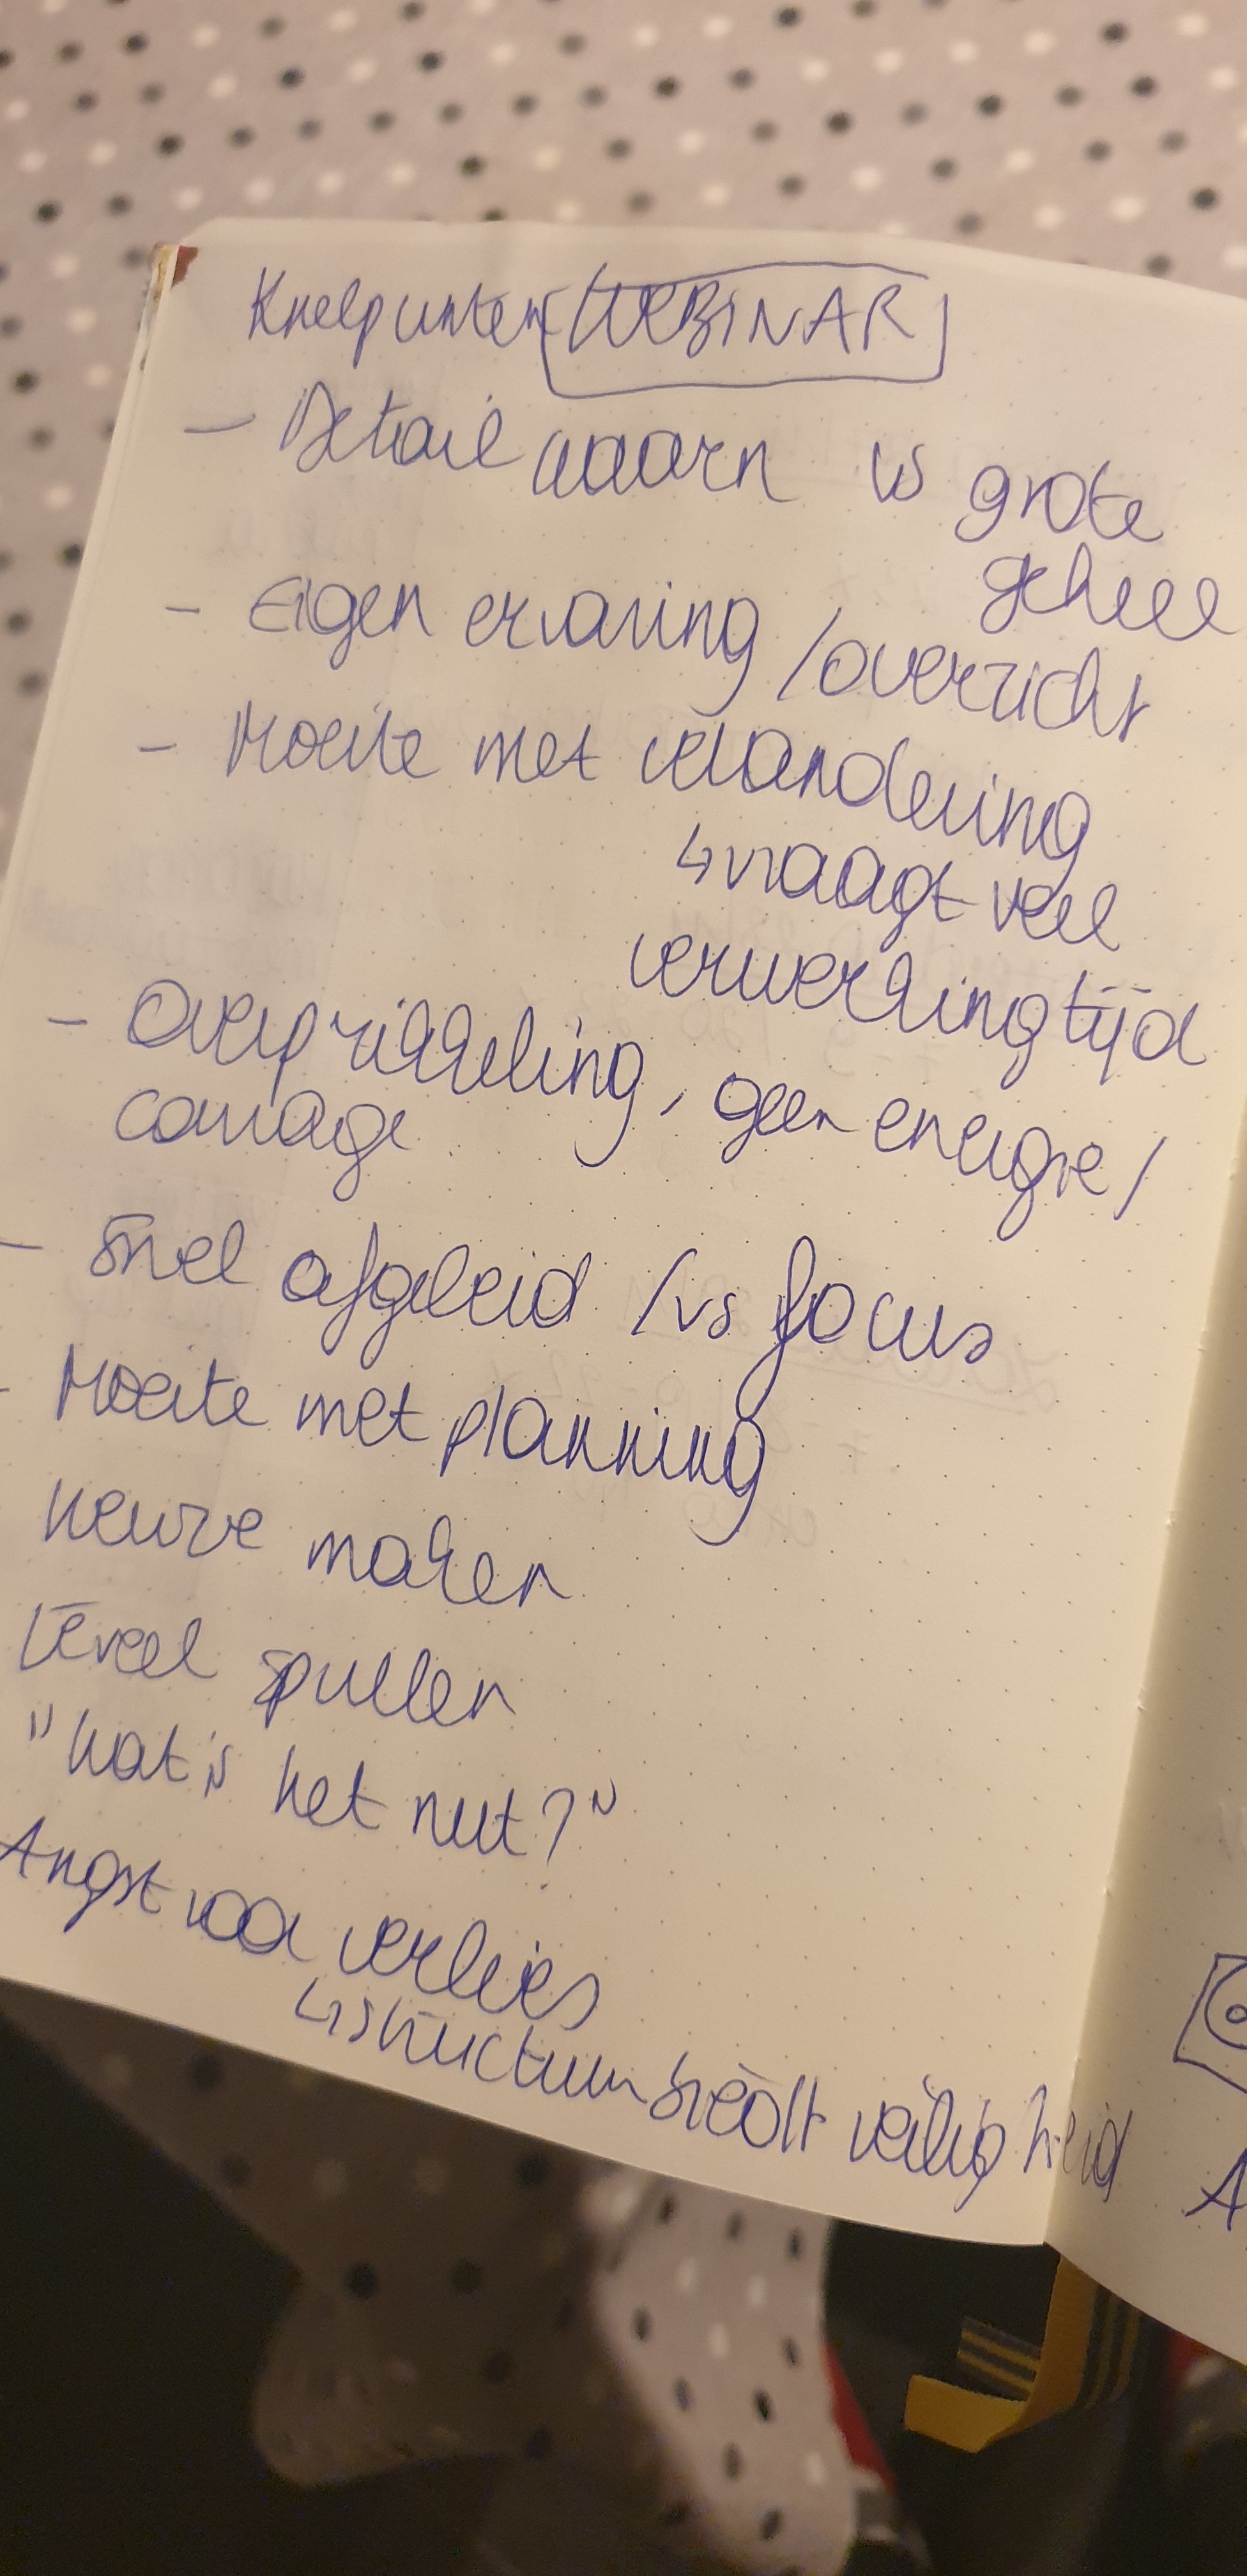 Knelpunten WEBINAR
- Detail waarn vs grote
geheel
- Eigen ervaring / overzicht
- Moeite met verandering
↳ vraagt veel
verwerking tijd
- Overprikkeling, geen energie /
courage
- Snel afgeleid / vs focus
- Moeite met planning
keuze maken
Teveel spullen
"Wat is het nut?"
Angst voor verlies
↳ structuur biedt veiligheid
A